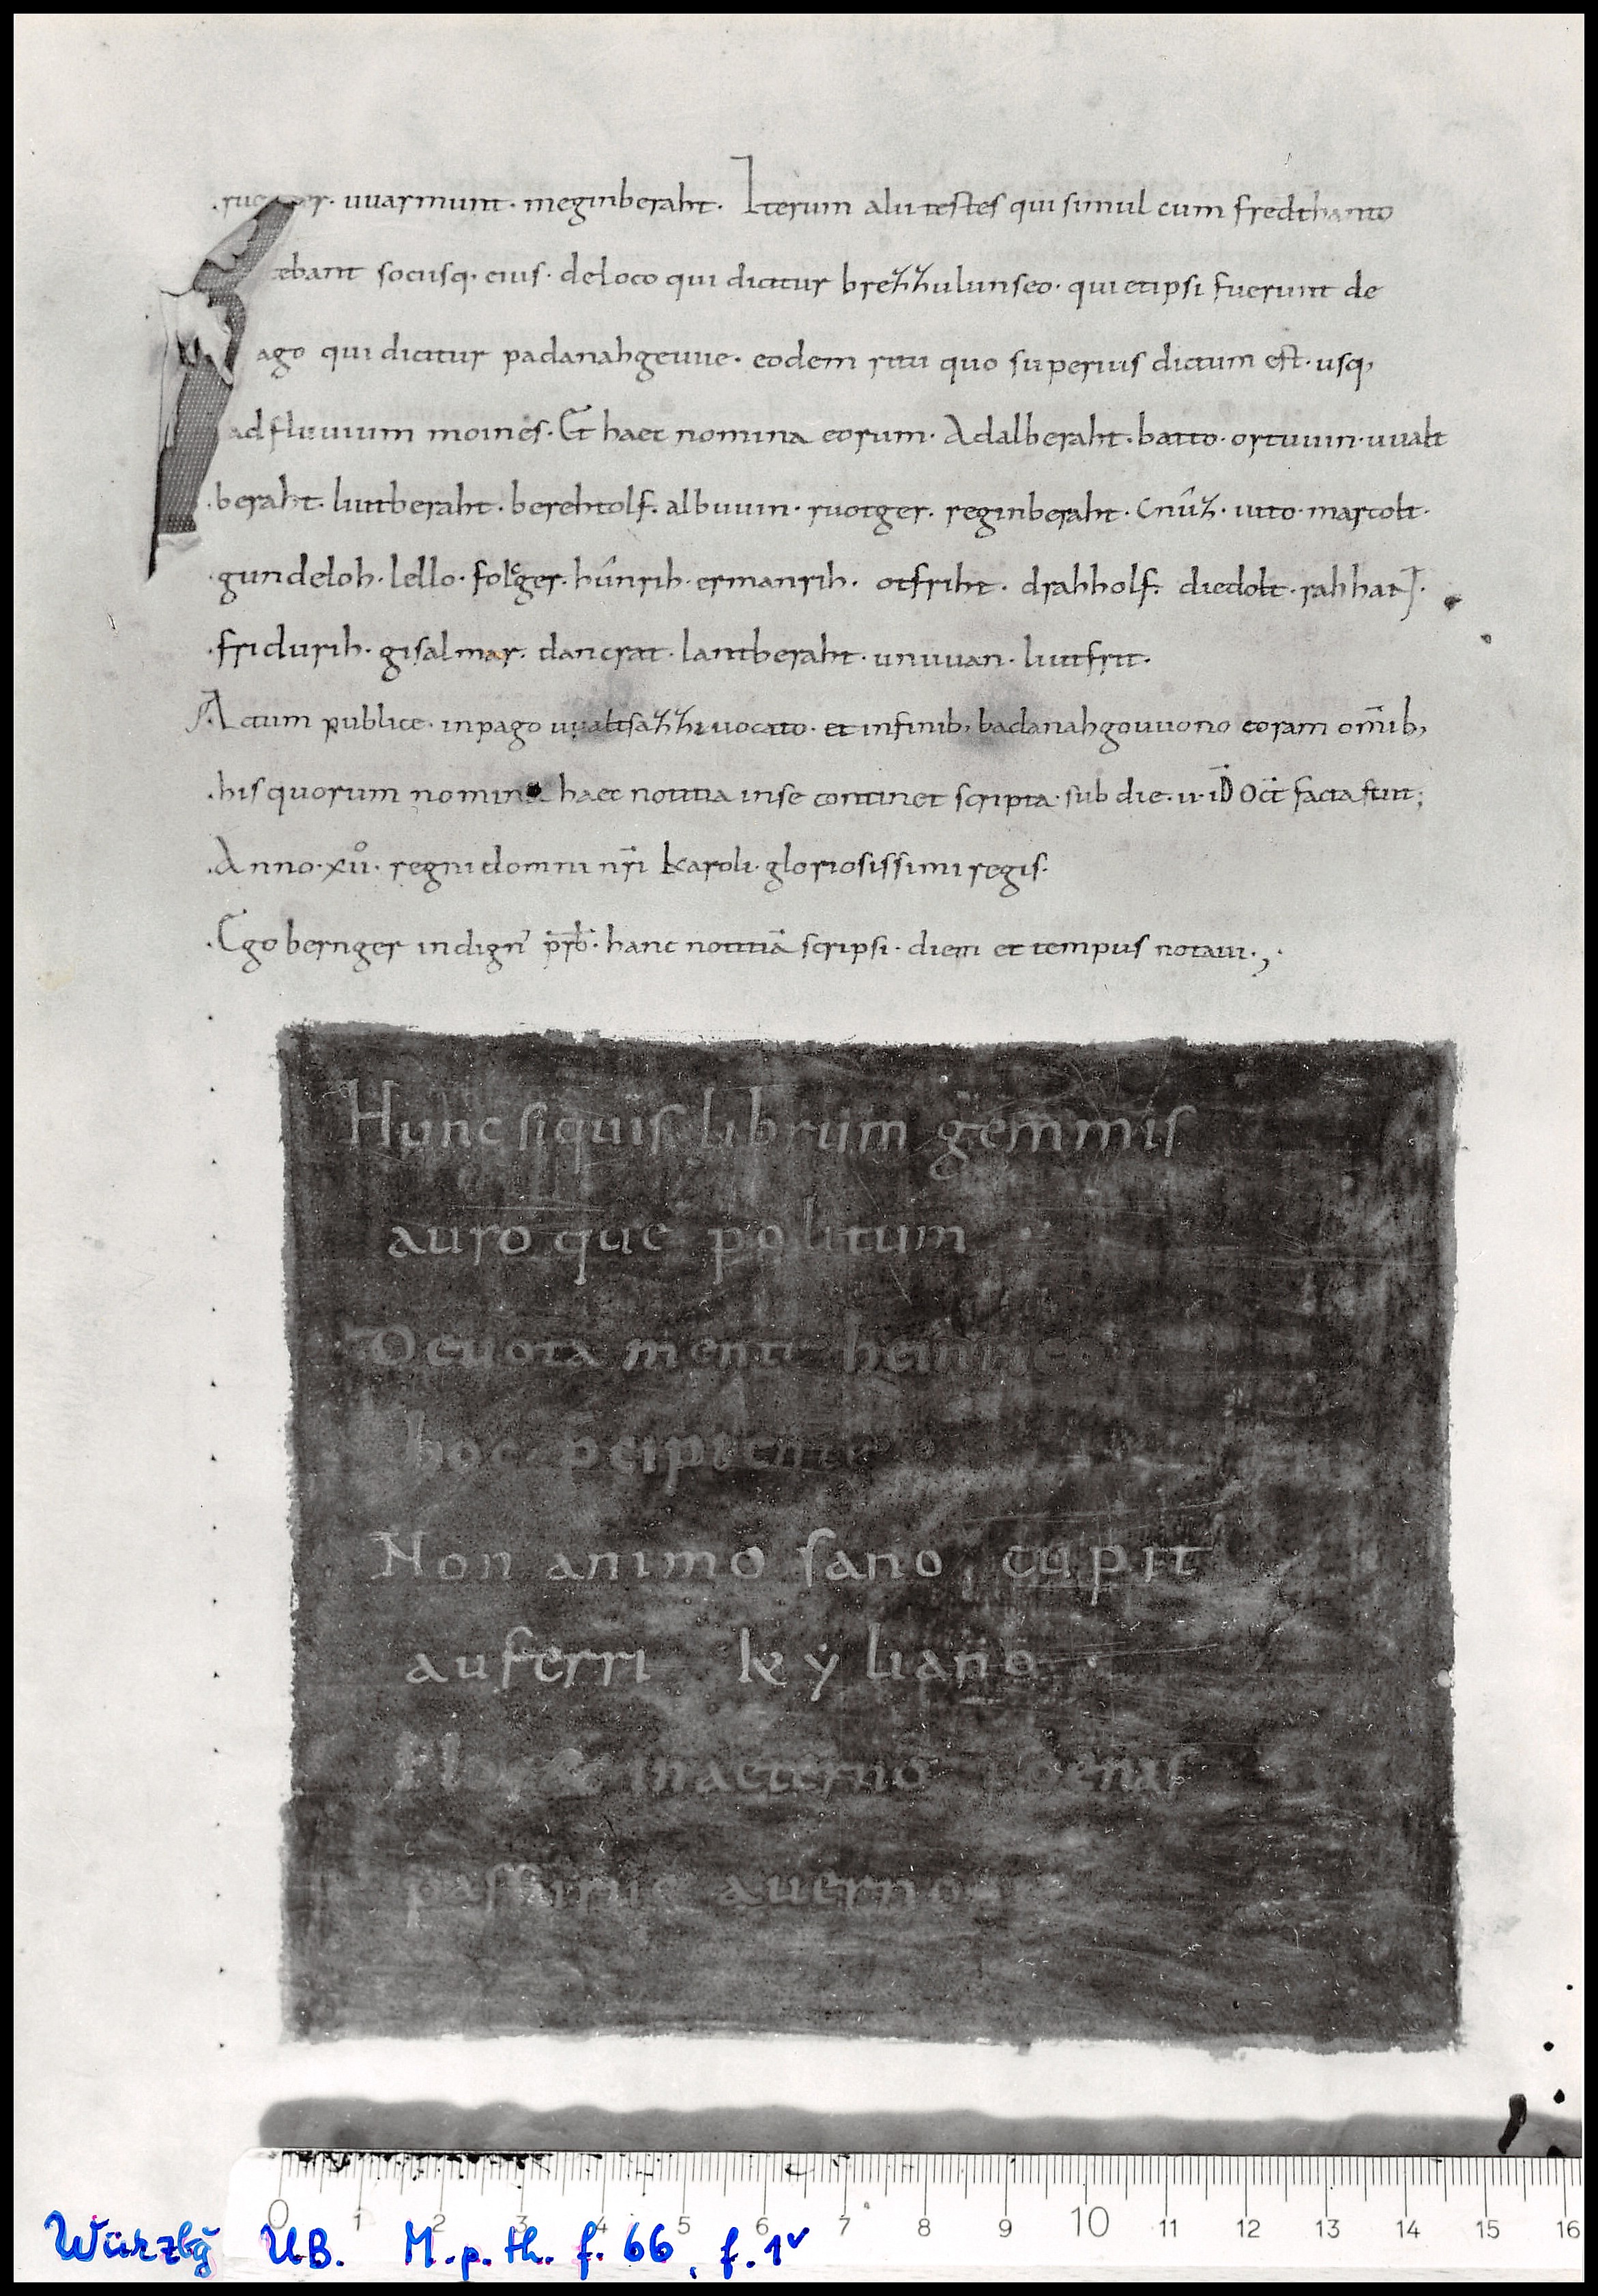 uuarmunt · meginberaht · Iterum alii testes qui simul cum fredthanto
sociisq· eius · deloco qui dicitur brezzulunseo · qui etipsi fuerunt de
ago qui dicitur padanahgeuue · eodem ritu quo superius dictum est · usq,
ad fluuium moines · Et haec nomina eorum · Adalberaht · batto · ortuuin · uualt
·beraht · liutberaht · berehtolf · albuuin · ruotger · reginberaht · cnûz · utto · marcolt·
·gundeloh · lello · folcger · hûnrih · ermanrih · otfriht · drahholf · diedolt · rahhant·
·fridurih · gisalmar · dancrat · lantberaht · unuuan · liutfrit·
Actum publice · inpago uualtsazzi uocato · et infinib, badanahgouuono coram om̄ib,
·his quorum nomina haec notitia inse continet scripta · sub die · ii · id oct̄ facta fuit;
·Anno · xiiº · regni domni nr̄i karoli · gloriosissimi regis·
·Ego bernger indign' pr̄b · hanc notitiā scripsi · diem et tempus notaui·,·
Hunc siquis librum gemmis
auroque politum ·
Deuota menti heinrico
hoc p̄cipiente
Non animo sano cupit
auferri kyliano ·
inaeterno poenas
auerno
0 1 2 3 4 5 6 7 8 9 10 11 12 13 14 15 16
Würzbg UB. M.p.th.f. 66, f.1v